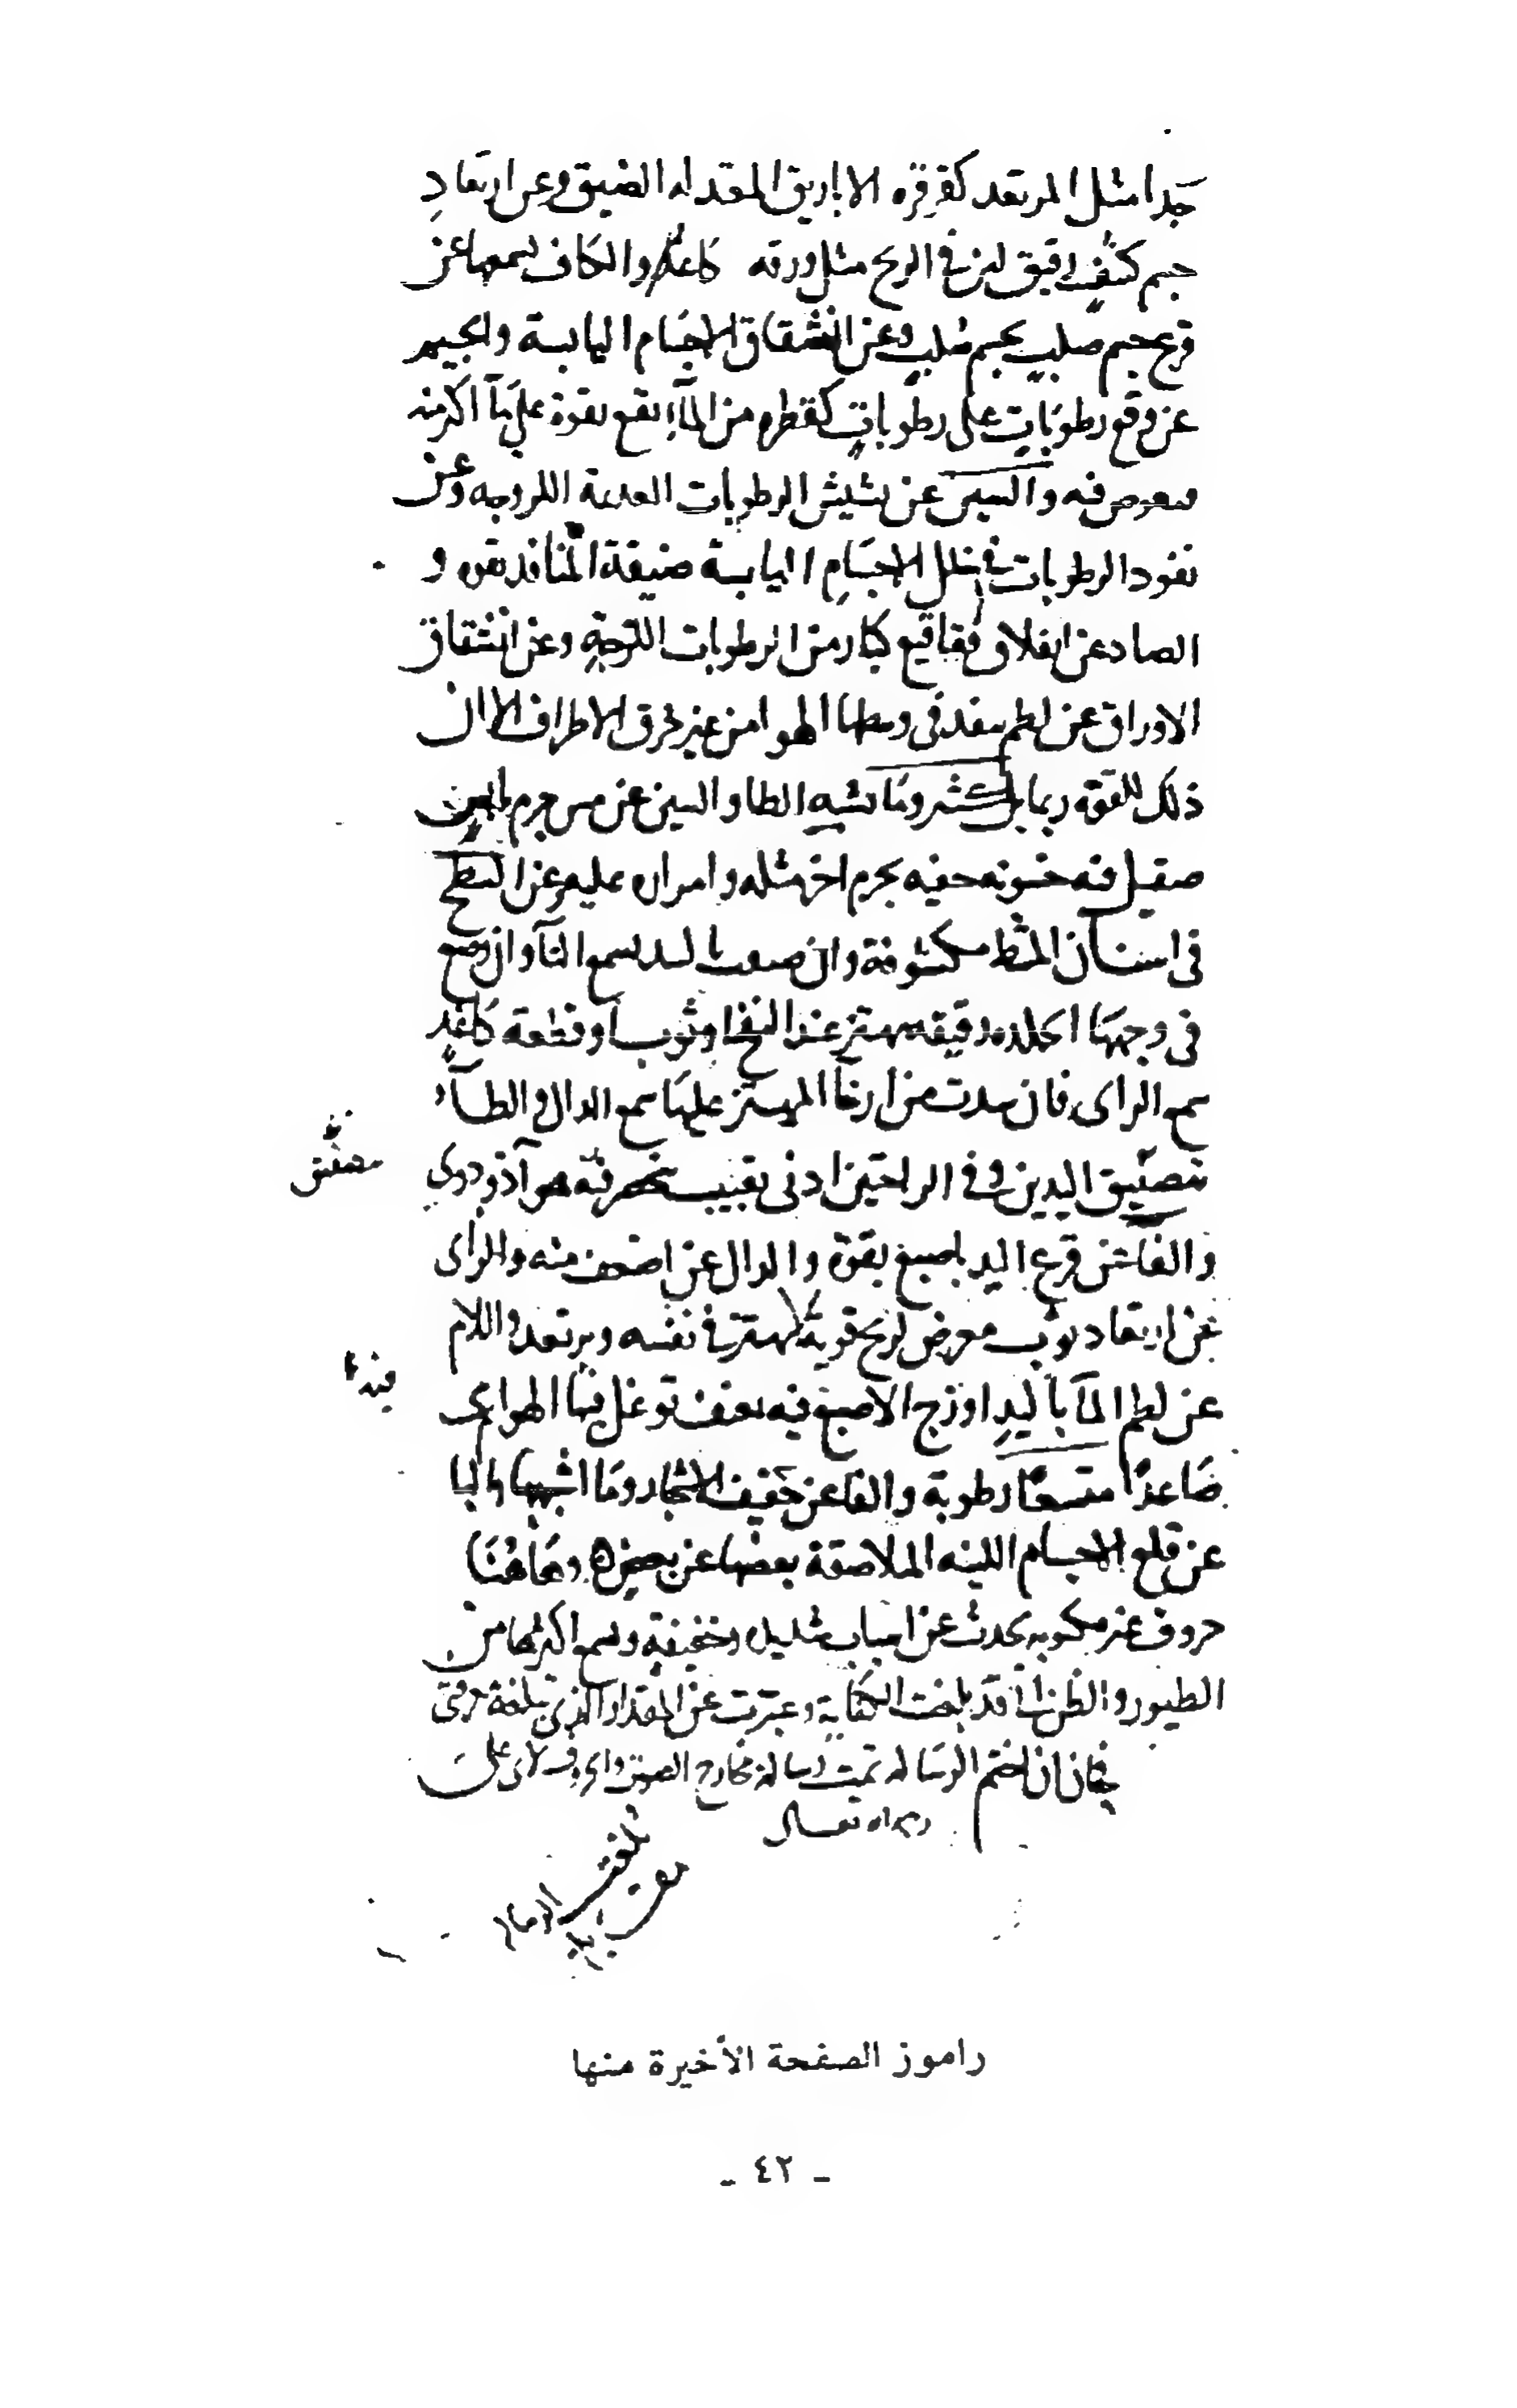 جدا مثل المرتعد كقرقره الاباريق المقداه الضيق وعن ارتعاد
جسم كثيف رقيق لين في الريح مثل ورقه كاغد والكاف تسمعها عن
قرع جسم صلب بجسم صلب وعن انشقاق الاجسام اليابسة والجيم
عن وقع رطوبات على رطوبات كقطره من الماء تقع بقوة على ماء اكثر منه
فتغوص فيه والسين عن نشيش الرطوبات العديمة اللزوجه وعن
نفود الرطوبات في خلل الاجسام اليابسة ضيقة المنافذ و
الصاد عن انفلاق فقاقيع كبار من الرطوبات اللزجة وعن انشقاق
الاوراق عن لطم ينفد في وسطها الهوا من غير خرق الاطراف الا ان
ذلك للقوة ربما وما تشبه الظا والسين عن مس جرم
صقيل فيه خشونه خفيه بجرم اخر مثله وامراره عليه وعن النفخ
في اسنان المشط مكشوفة وان اليد سمع الثاء وان وضع
في وجهها الجلده رقيقه تهتز عند النفخ او ثوب او قطعة كاغد
سمع الزاى فان سدت من ارنا المهتز عليها سمع الدال والطاء
تصفيق اليدين وفي الراحتين ادنى تقبيب هواء ذو دوي
تصفيق
والقاف عن قرع اليد باصبع بقوة والدال عن اضعف منه والراى
عن ارتعاد ثوب معرض لريح قوية تهتز في نفسه ويرتعد واللام
عن لطم الماء باليد او زج الاصبع فيه بعنف توغل فيها الهواء
فيندفع
صاعدا متسعا رطوبة والفا عن حفيف الاشجار وما اشبهها والبا
عن قلع الاجسام اللينه الملاصقة بعضها عن بعض ه وهاهنا
حروف غير مكتوبه تحدث عن اسباب مثلها خفيفة وسمع اكثرها من
الطيور والظن انى قد بلغت الكفاية وعبرت عن المقدار الذي تبلغه معرفتى
فحان ان اختم الرساله تمت رساله مخارج الصوت والحروف لابى على
رحمه الله تعالى
راموز الصفحة الأخيرة منها
- ٤٢ -